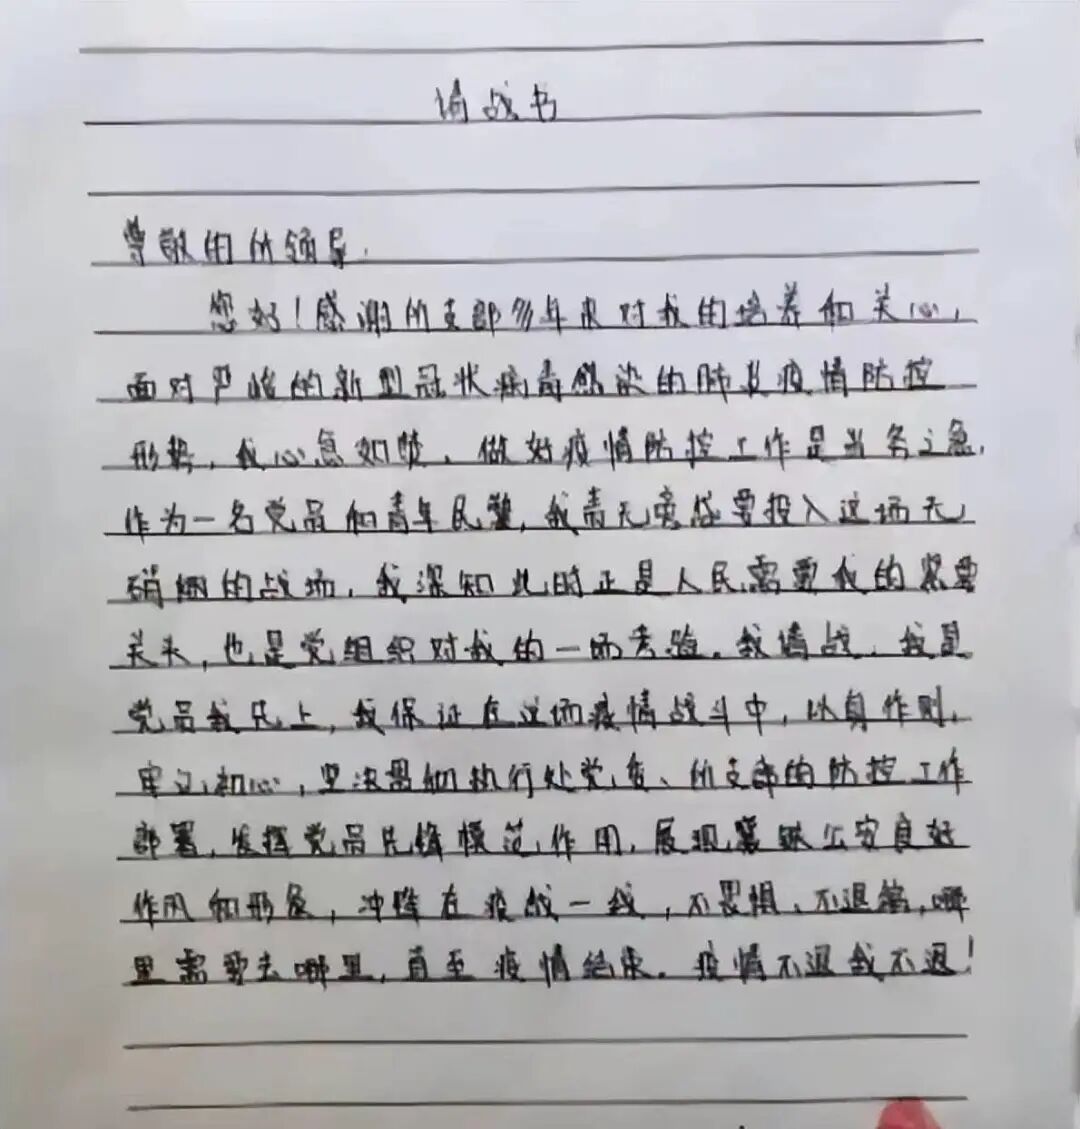 请战书
尊敬的所领导:
您好!感谢所支部多年来对我的培养和关心,
面对严峻的新型冠状病毒感染的肺炎疫情防控
形势,我心急如焚、做好疫情防控工作是当务之急,
作为一名党员和青年民警,我责无旁贷要投入这场无
硝烟的战场,我深知此时正是人民需要我的紧要
关头,也是党组织对我的一场考验。我请战、我是
党员我先上,我保证在这场疫情战斗中,以身作则,
牢记初心,坚决贯彻执行处党委、所支部的防控工作
部署,发挥党员先锋模范作用,展现襄铁公安良好
作风和形象,冲锋在疫战一线,不畏惧、不退缩,哪
里需要去哪里,直至疫情结束。疫情不退我不退!